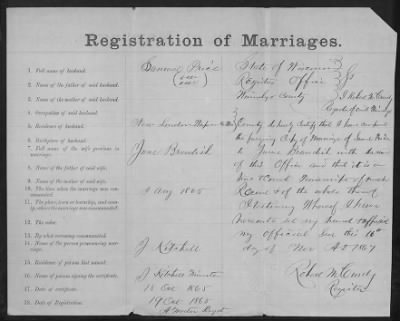 Registration of Marriages.
1. Full name of husband.
Samuel Price
2. Name of the father of said husband.
3. Name of the mother of said husband.
4. Occupation of said husband.
5. Residence of husband.
New London
6. Birthplace of husband.
7. Full name of the wife previous to marriage.
Jane
8. Name of the father of said wife.
9. Name of the mother of said wife.
10. The time when the marriage was contracted.
9 Aug 1865
11. The place, town or township, and county, where the marriage was contracted.
12. The color.
13. By what ceremony contracted.
14. Name of the person pronouncing marriage.
J
15. Residence of person last named.
16. Name of person signing the certificate.
J Minister
17. Date of certificate.
18 Oct 1865
18. Date of Registration.
19 Oct 1865
State of Wisconsin
Register Office
County
I Robert
County do hereby certify that I have compared
the foregoing Copy of Marriage of
to Jane with the
of this Office and that it is a
true & correct Transcript of such
Record & of the whole thereof
In testimony Whereof I have
hereunto set my hand & affixed
my Official Seal this 16th
day of Nov AD 1867
Robert
Register